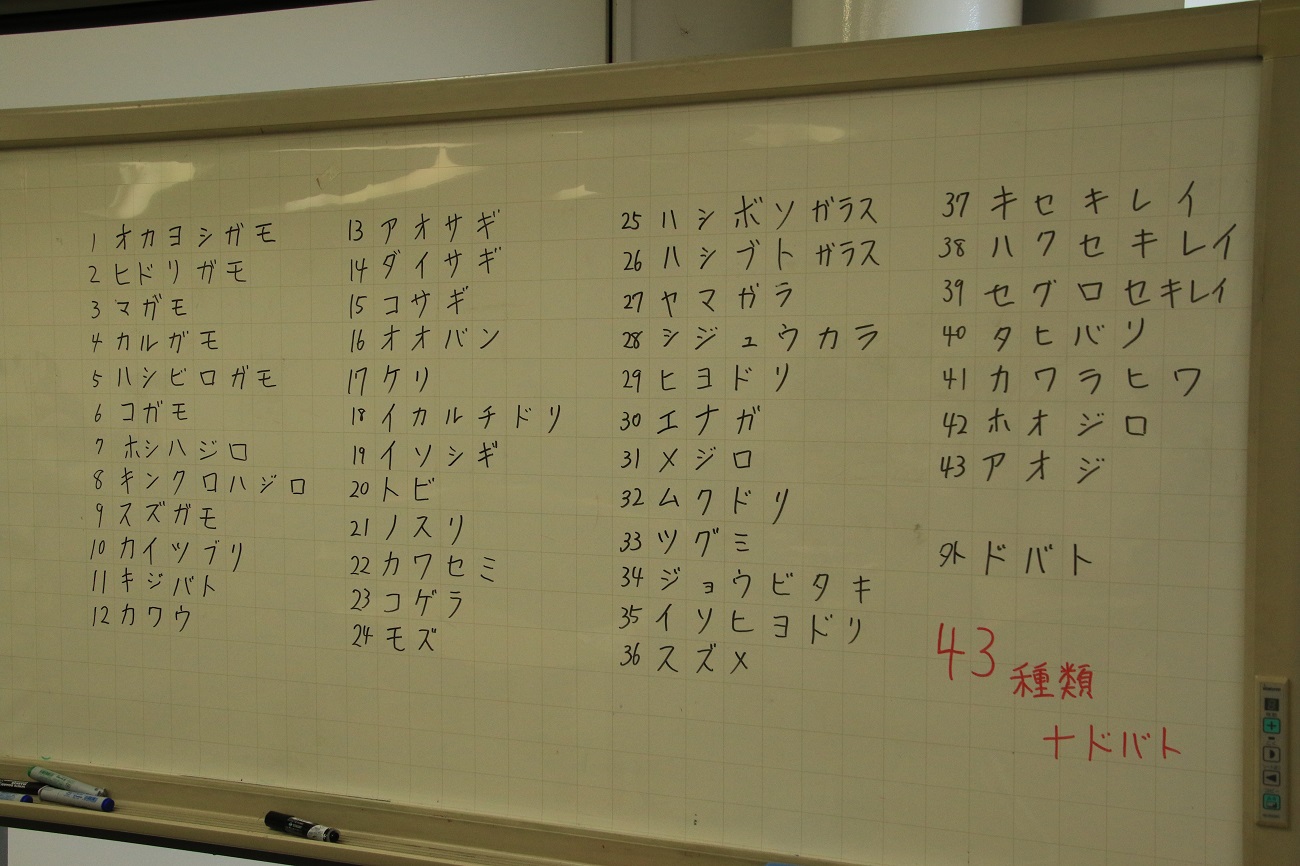 1 オカヨシガモ
2 ヒドリガモ
3 マガモ
4 カルガモ
5 ハシビロガモ
6 コガモ
7 ホシハジロ
8 キンクロハジロ
9 スズガモ
10 カイツブリ
11 キジバト
12 カワウ
13 アオサギ
14 ダイサギ
15 コサギ
16 オオバン
17 ケリ
18 イカルチドリ
19 イソシギ
20 トビ
21 ノスリ
22 カワセミ
23 コゲラ
24 モズ
25 ハシボソガラス
26 ハシブトガラス
27 ヤマガラ
28 シジュウカラ
29 ヒヨドリ
30 エナガ
31 メジロ
32 ムクドリ
33 ツグミ
34 ジョウビタキ
35 イソヒヨドリ
36 スズメ
37 キセキレイ
38 ハクセキレイ
39 セグロセキレイ
40 タヒバリ
41 カワラヒワ
42 ホオジロ
43 アオジ
外 ドバト
43種類
+ドバト